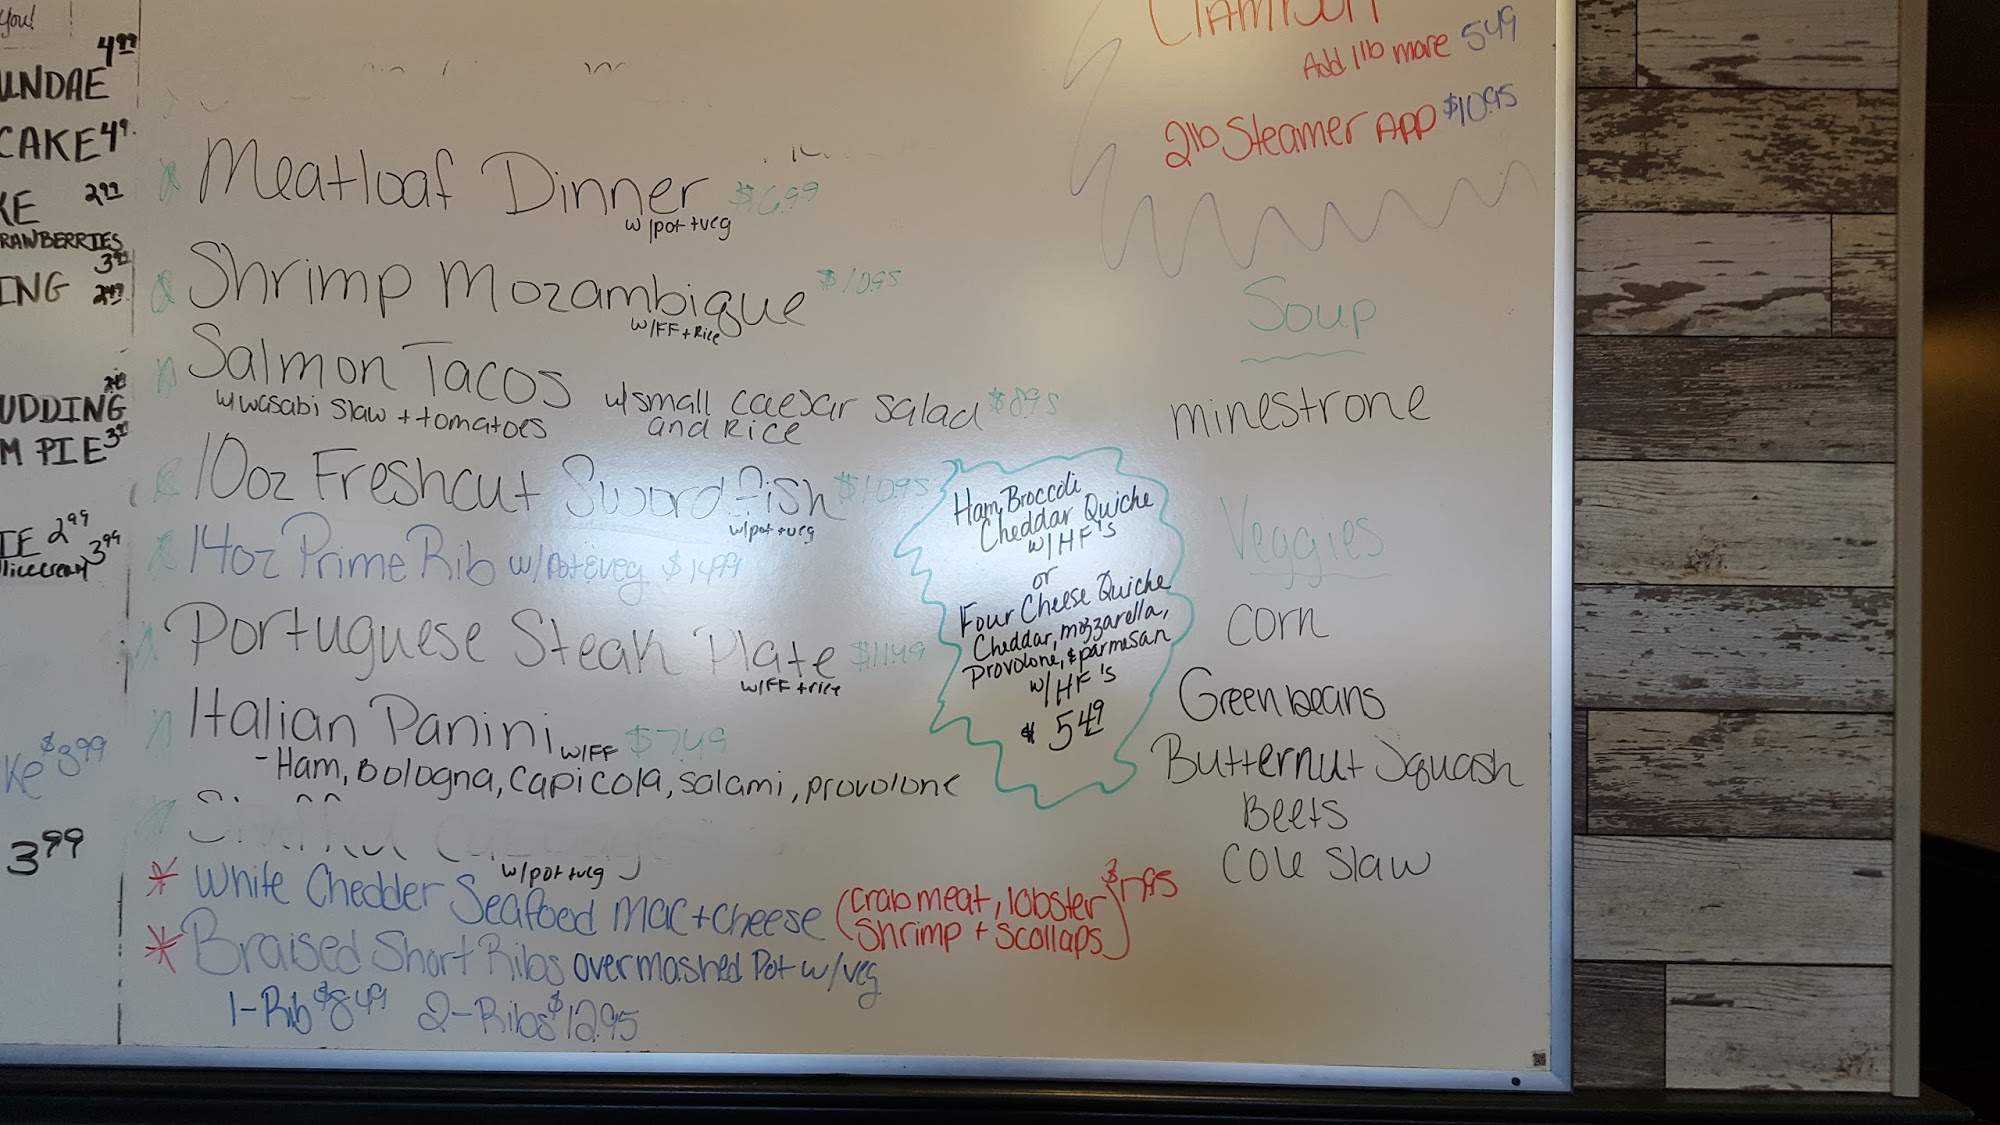 You!
4.99
UNDAE
CAKE 4
KE 2.99
RANBERRIES
ING
UDDING
M PIE 3
IE 2.99
3.99
KE $3.99
3.99
Add 1lb more 5.49
2lb Steamer APP $10.95
Meatloaf Dinner $6.99
w/pot + veg
Shrimp Mozambique $10.95
w/FF + Rice
Salmon Tacos w/small caesar salad $8.95
w/wasabi slaw + tomatoes and Rice
10oz Freshcut Swordfish $10.95
w/pot + veg
14oz Prime Rib w/Pot & veg $14.99
Portuguese Steak Plate $11.49
w/FF + rice
Italian Panini w/FF $7.49
- Ham, Bologna, capicola, salami, provolone
w/pot + veg
* White Chedder Seafood mac + cheese (crab meat, lobster
shrimp + scollaps)
* Braised Short Ribs over mashed Pot w/veg
1-Rib $8.49 2-Ribs $12.95
Ham, Broccoli
Cheddar Quiche
w/HF's
or
Four Cheese Quiche
Cheddar, mozzarella,
Provolone, & parmesan
w/HF's
$5.49
Soup
minestrone
Veggies
Corn
Green beans
Butternut Squash
Beets
Cole Slaw